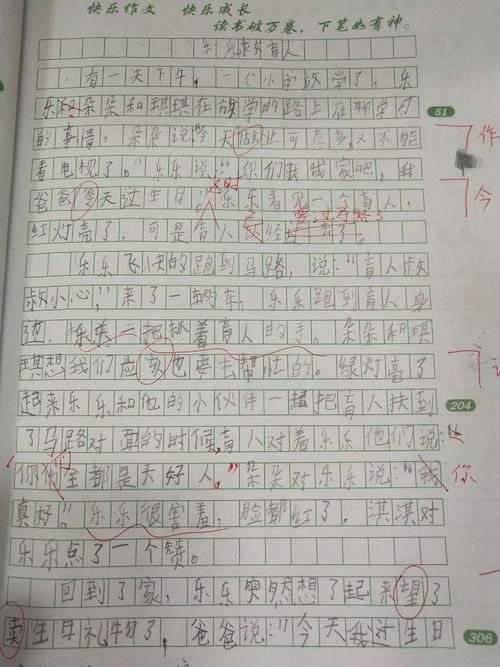 快乐作文 快乐成长
读书破万卷，下笔如有神。
乐乐 盲人
有一天下午，一个小学放学了，乐
乐和朵朵和琪琪在放学的路上在聊学习
51
的事情，朵朵说"今天作业可真多，又不能 作
看电视了。"乐乐说："你们去我家吧，我
这时
爸爸今天过生日。"乐乐看见一个盲人， 今
要过马路了
红灯亮了，可是盲人已经
乐乐飞快的跑到马路，说："盲人叔
叔小心，"来了一辆车，乐乐跑到盲人身
边，乐乐一把抓着盲人的手。朵朵和琪
琪想我们应该也要去帮忙的。绿灯亮了
起来乐乐和他的小伙伴一起把盲人扶到
204
了马路对面的时候，盲人对着乐乐他们说：
"你们全都是大好人。"朵朵对乐乐说："我 你
真好"。乐乐很害羞，脸都红了，淇淇对
乐乐点了一个赞。
回到了家，乐乐突然想了起来望了
卖生日礼物了，爸爸说："今天我过生日
306